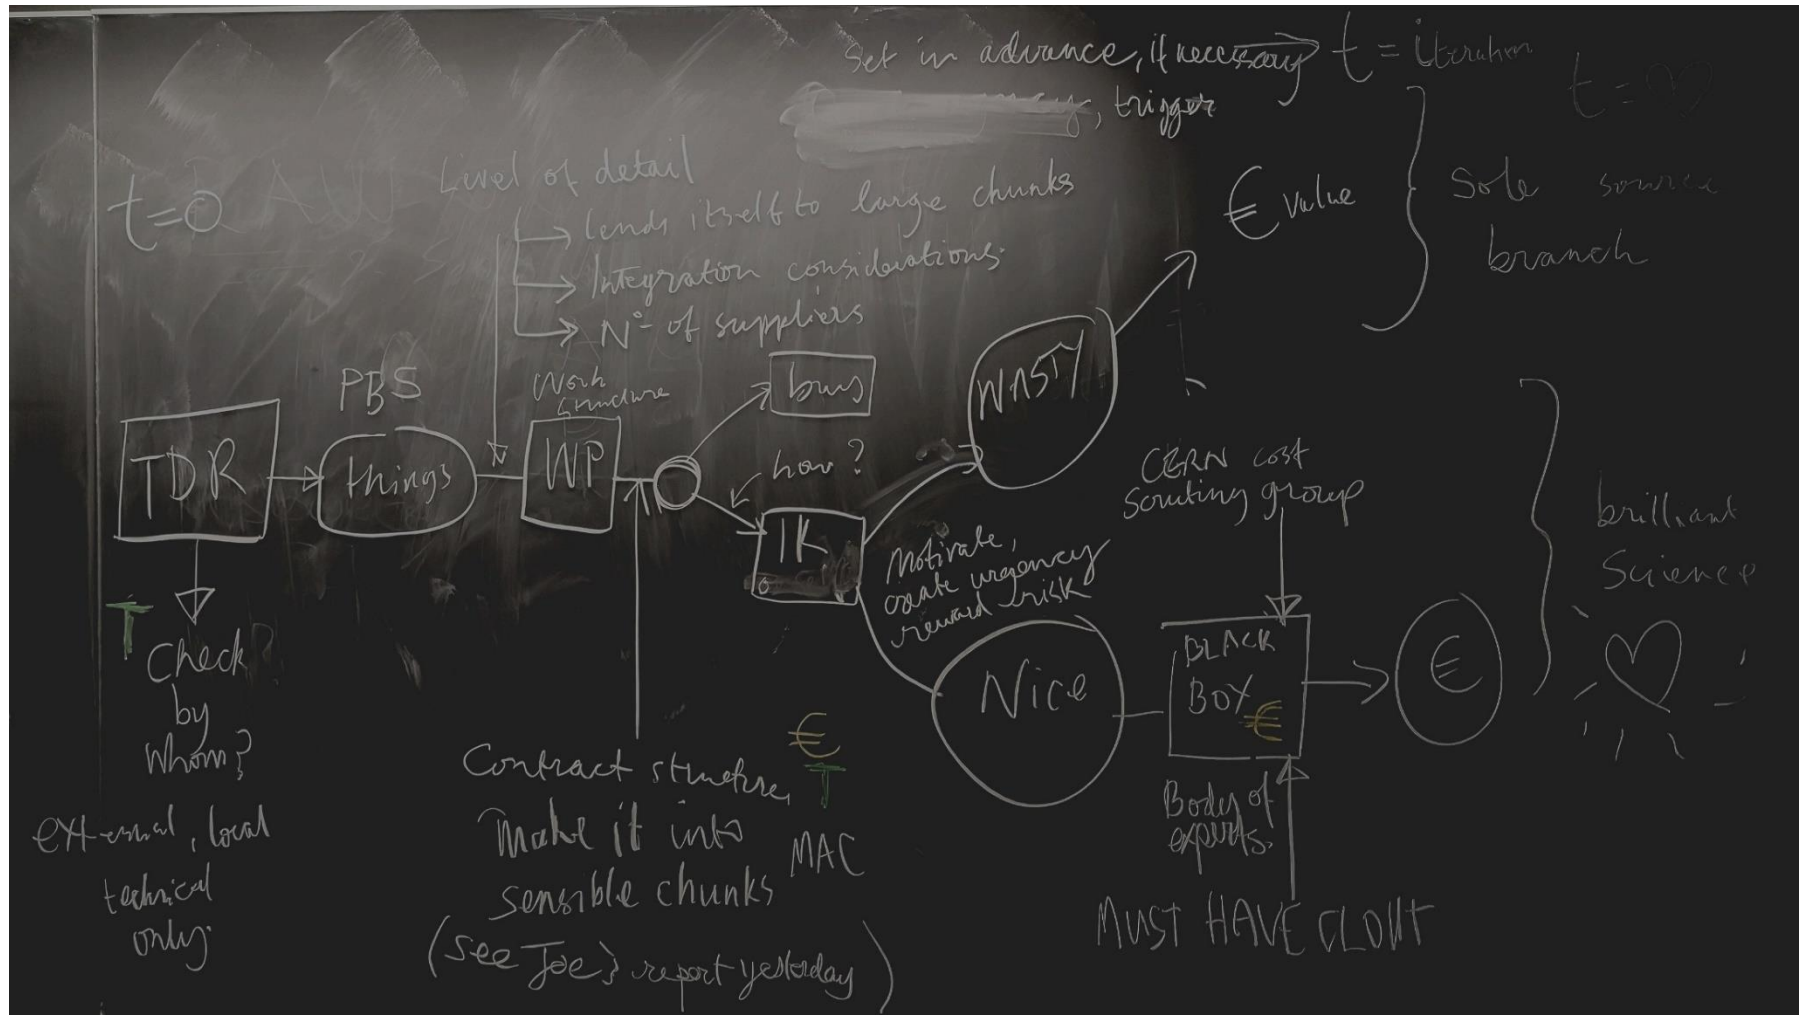 Set in advance, if necessary
t = iteration
, trigger
t = ∞
t=0
Level of detail
lends itself to large chunks
Integration considerations.
Nº of suppliers
€ value
Sole source
branch
PBS
Work
structure
TDR
things
WP
buy
how?
IK
NASTY
Motivate,
create urgency
reward risk
Nice
CERN cost
Scrutiny group
BLACK
BOX
€
€
brilliant
Science
T
Check
by
Whom?
external, local
technical
only.
Contract structure,
Make it into
sensible chunks
(see Joe's report yesterday)
€
T
MAC
Body of
experts.
MUST HAVE CLOUT